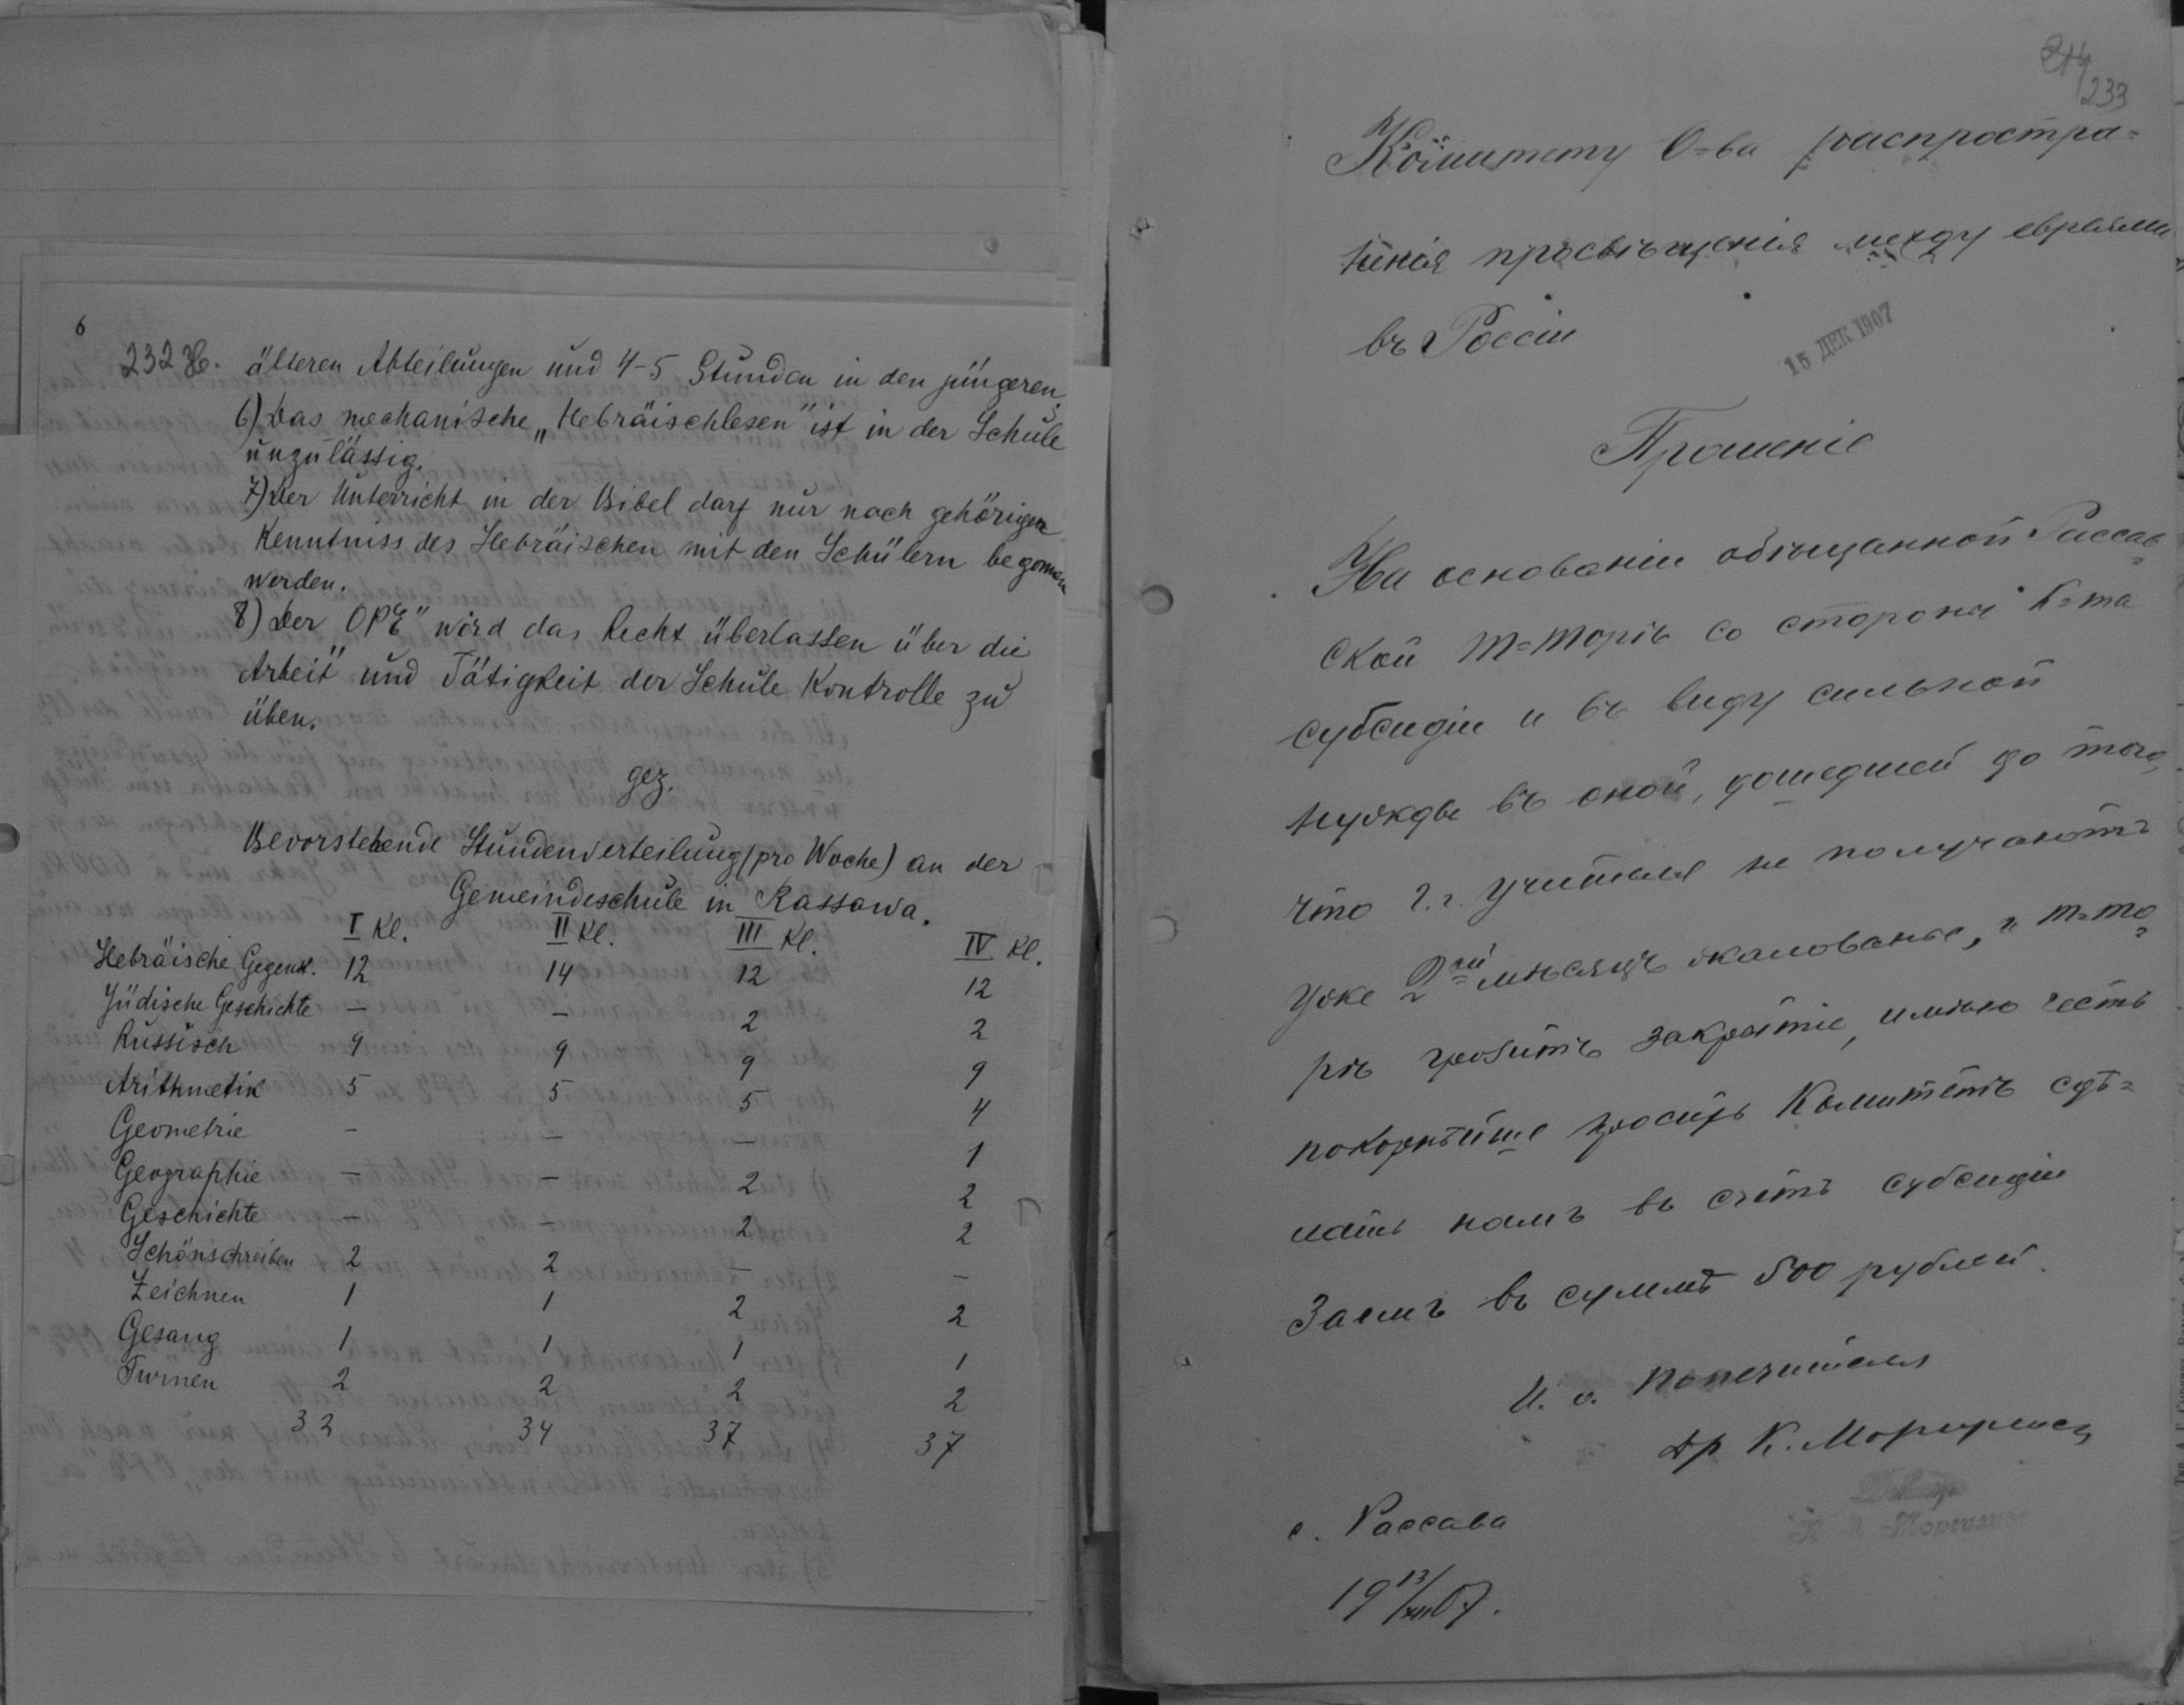 6
232 Ж. älteren Abteilungen und 4-5 Stunden in den jüngeren.
6) Das mechanische „Hebräischlesen" ist in der Schule
unzulässig.
7) Der Unterricht in der Bibel darf nur nach gehöriger
Kenntniss des Hebräischen mit den Schülern begonnen
werden.
8) Der OPE" wird das Recht überlassen über die
Arbeit und Tätigkeit der Schule Kontrolle zu
üben.
gez.
Bevorstehende Stundenverteilung (pro Woche) an der
Gemeindeschule in Rassawa.
I Kl. II Kl. III Kl. IV Kl.
Hebräische Gegenst. 12 14 12 12
Jüdische Geschichte — — 2 2
Russisch 9 9 9 9
Arithmetik 5 5 5 4
Geometrie — — — 1
Geographie — — 2 2
Geschichte — — 2 2
Schönschreiben 2 2 — —
Zeichnen 1 1 2 2
Gesang 1 1 1 1
Turnen 2 2 2 2
32 34 37 37
214
233
Комитету О-ва распростра=
ненія просвѣщенія между евреями
въ Россіи
15 ДЕК 1907
Прошеніе
На основаніи обѣщанной Рассав=
ской Т=Торѣ со стороны К=та
субсидіи и въ виду сильной
нужды въ оной, дошедшей до того,
что г.г. учителя не получаютъ
уже 2ой мѣсяцъ жалованье, и т=то=
рѣ грозитъ закрытіе, имѣю честь
покорнѣйше просить Комитетъ сдѣ=
лать намъ въ счетъ субсидіи
Заемъ въ суммѣ 500 рублей.
И. о. попечителя
Др К.
с. Рассава
19 13/XII 07.